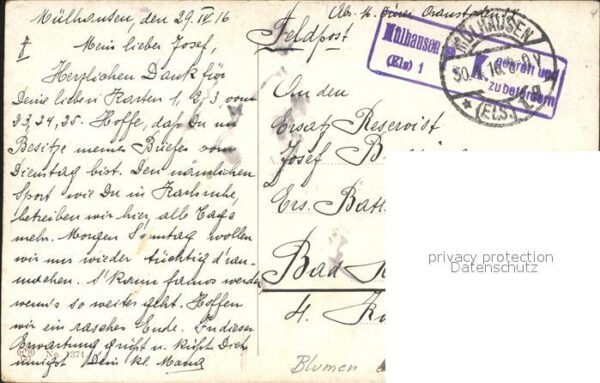 Mülhausen, den 29.IV.16
I
Mein lieber Josef,
Herzlichen Dank für
Deine lieben Karten 1, 2, 3, vom
23, 24, 25. Hoffe, daß Du im
Besitze meines Briefes vom
Dienstag bist. Den nämlichen
Sport wie Du in Karlsruhe,
betreiben wir hier, alle Tage
mehr. Morgen Sonntag wollen
wir uns wieder tüchtig d'ran-
machen. S'kann famos werden
wenn's so weiter geht. Hoffen
wir ein rasches Ende. In dieser
Erwartung grüßt u. küßt Dich
innigst Dein kl.
No. 1371
Abs.
Feldpost
Mülhausen
(Els) 1
K. Geprüft und
zu befördern
MÜLHAUSEN
30.4.16.8-9
(ELS)
An den
Ersatz Reservist
Josef
Ers. Batl.
Bad
4. K
Blumen
privacy protection
Datenschutz